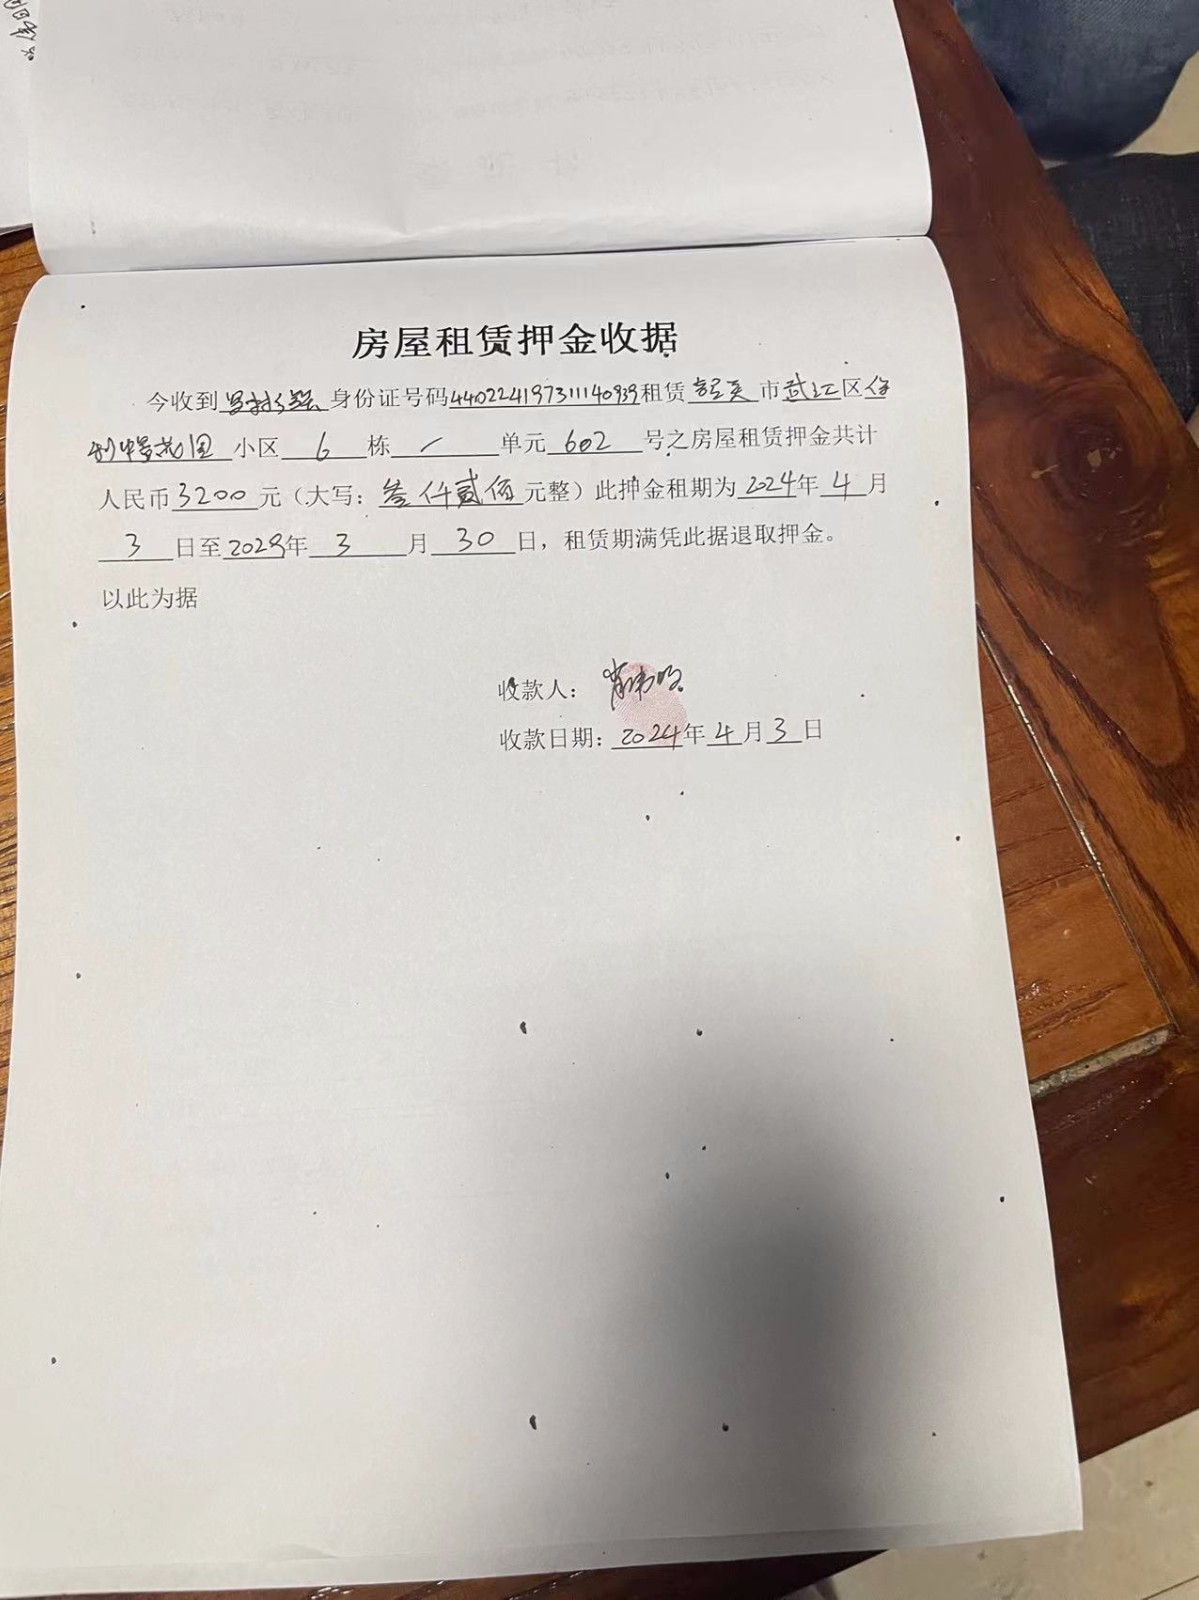 房屋租赁押金收据
今收到 身份证号码440224197311140939租赁韶关市武江区保
利中景花园小区6栋/单元602号之房屋租赁押金共计
人民币3200元（大写：叁仟贰佰元整）此押金租期为2024年4月
3日至2029年3月30日，租赁期满凭此据退取押金。
以此为据
收款人：
收款日期：2024年4月3日